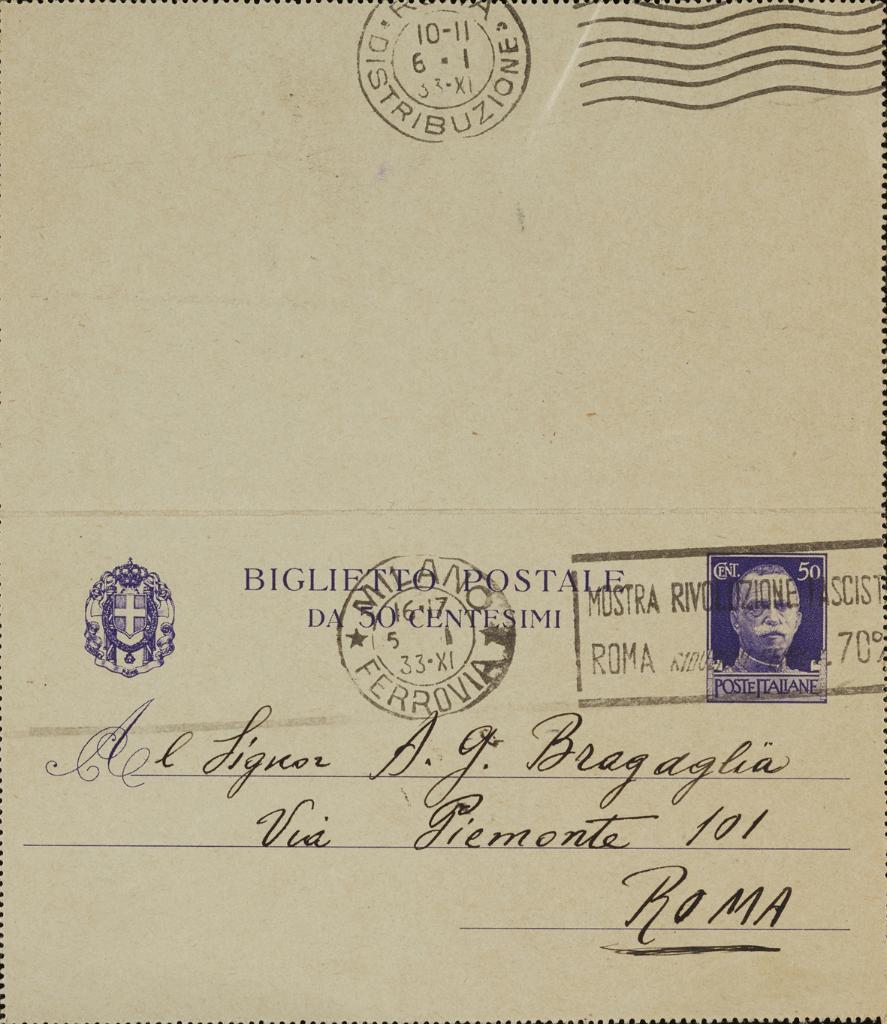 ROMA
10-11
6 · 1
33-XI
· DISTRIBUZIONE ·
BIGLIETTO POSTALE
DA 50 CENTESIMI
MILANO
16-17
5 1
33-XI
★ FERROVIA ★
CENT. 50
POSTE ITALIANE
MOSTRA RIVOLUZIONE FASCIST
ROMA 70%
Al Signor A. G. Bragaglia
Via Piemonte 101
ROMA